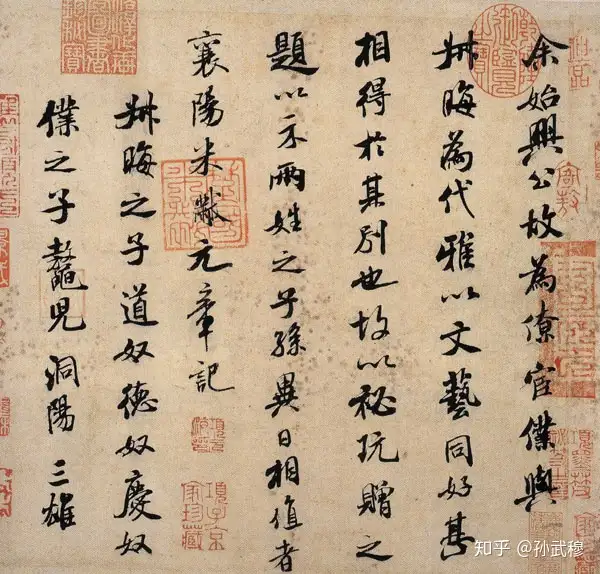 余始興公故為僚宦僕與
叔晦為代雅以文藝同好甚
相得於其別也故以秘玩贈之
題以示兩姓之子孫異日相值者
襄陽米黻元章記
叔晦之子道奴德奴慶奴
僕之子鼇兒洞陽三雄
項子京家珍藏
知乎 @孙武穆